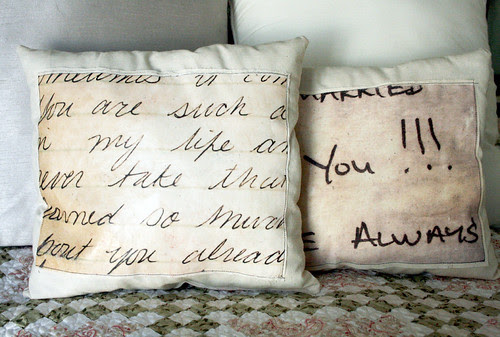 You are such a
my life an
ever take that
earned so much
bout you alread
MARRIED
YOU !!!
ALWAYS